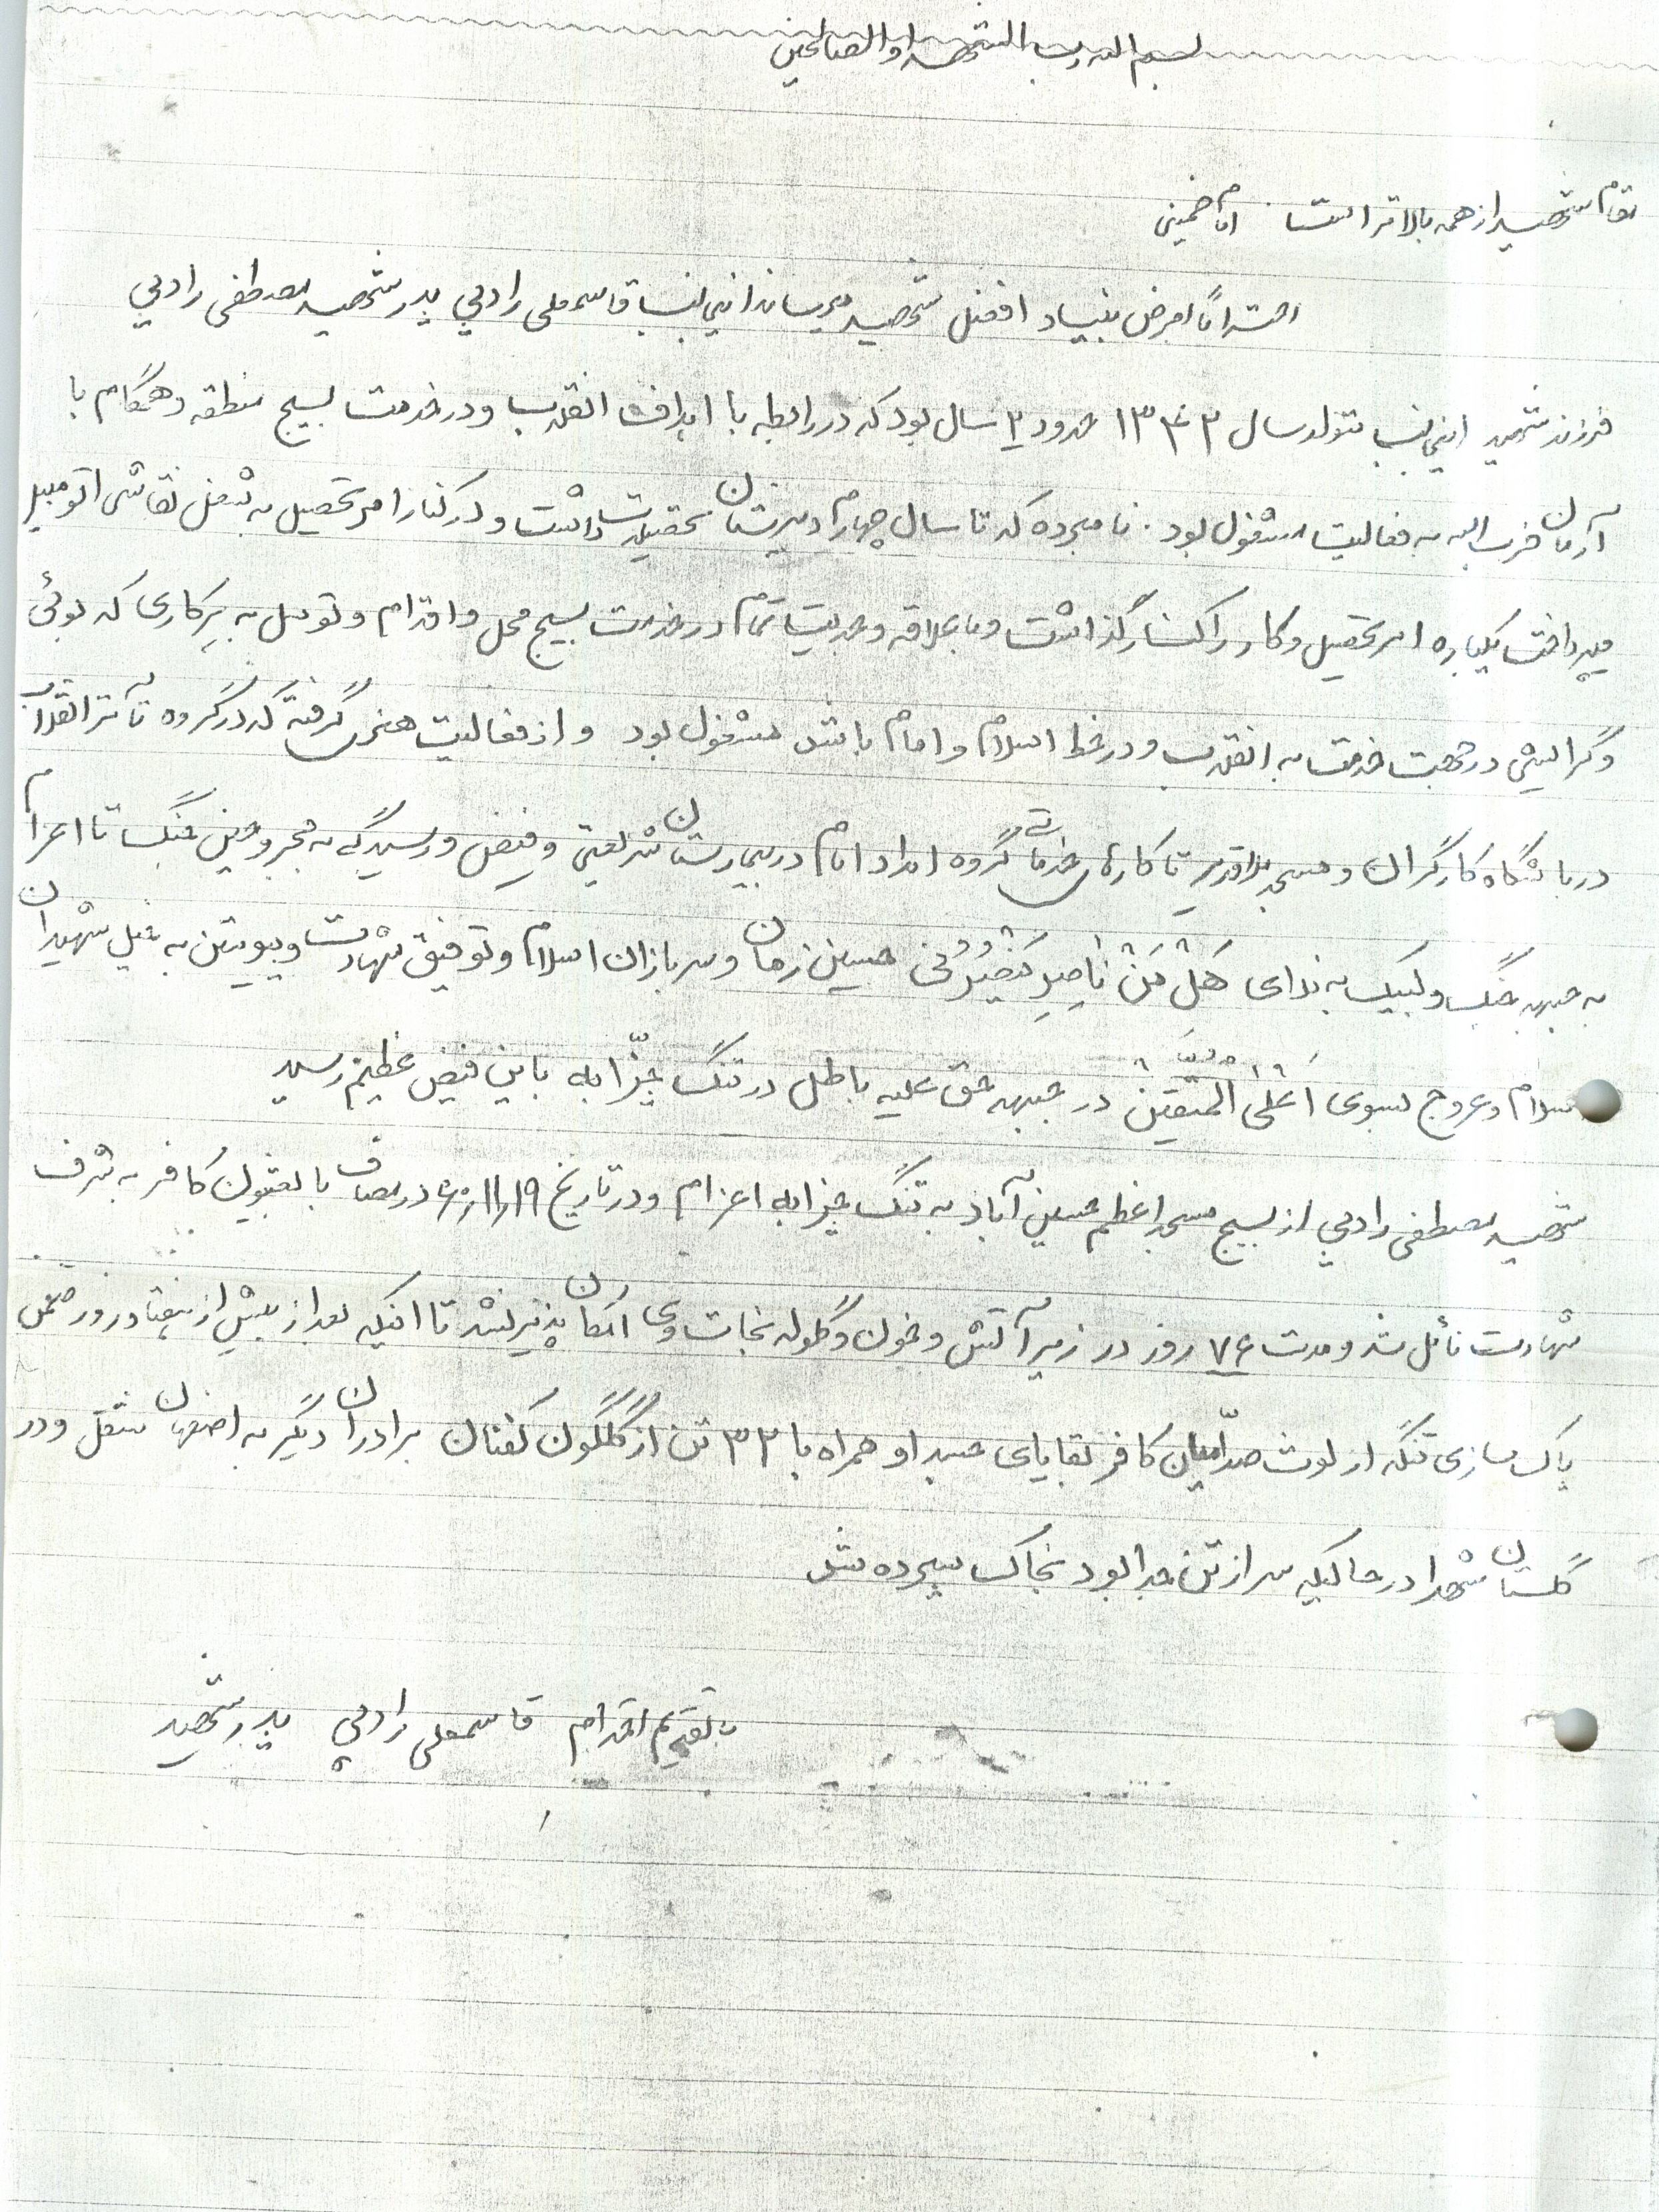 بسم الله رب الشهدا و الصالحین
مقام شهید از همه بالاتر است. امام خمینی
احتراماً بعرض بنیاد افضل شهید میرساند اینجانب قاسمعلی رادپی پدر شهید مصطفی رادپی
فرزند شهید اینجانب متولد سال ۱۳۴۲ حدود ۲ سال بود که در رابطه با اهداف انقلاب و در خدمت بسیج منطقه و همگام با
آرمان حزب الله به فعالیت مشغول بود. نامبرده که تا سال چهارم دبیرستان تحصیلات داشت و در کنار امر تحصیل به شغل نقاشی اتومبیل
میپرداخت یکباره امر تحصیل و کار را کنار گذاشت و با علاقه و جدیت تمام در خدمت بسیج محل و اقدام و توسل به هر کاری که بوئی
و گرایشی در جهت خدمت به انقلاب و در خط اسلام و امام باشد مشغول بود و از فعالیت هنری گرفته که در گروه تآتر انقلاب
در باشگاه کارگران و مسجد تا کارهای خدماتی گروه امداد امام در بیمارستان شریعتی و فیض و رسیدگی به مجروحین جنگ تا اعزام
به جبهه جنگ و لبیک به ندای هَلْ مَنْ ناصِرٍ یَنْصُرُنی حسین زمان و سربازان اسلام و توفیق شهادت و پیوستن به خیل شهیدان
اسلام و عروج بسوی اَعْلیٰ در جبهه حق علیه باطل در تنگ چزّابه باین فیض عظیم رسید
شهید مصطفی رادپی از بسیج مسجد اعظم حسین آباد به تنگ چزابه اعزام و در تاریخ ۶۰٫۱۱٫۱۹ در مصاف با بعثیون کافر به شرف
شهادت نائل شد و مدت ۷۶ روز در زیر آتش و خون و گلوله نجات وی امکان پذیر نشد تا اینکه بعد از بیش از هفتاد روز ضمن
پاک سازی تنگه از لوث صدّامیان کافر بقایای جسد او همراه با ۳۲ تن از گلگون کفنان برادران دیگر به اصفهان منتقل و در
گلستان شهدا در حالیکه سر از تن جدا بود بخاک سپرده شد
با تقدیم احترام قاسمعلی رادپی پدر شهید